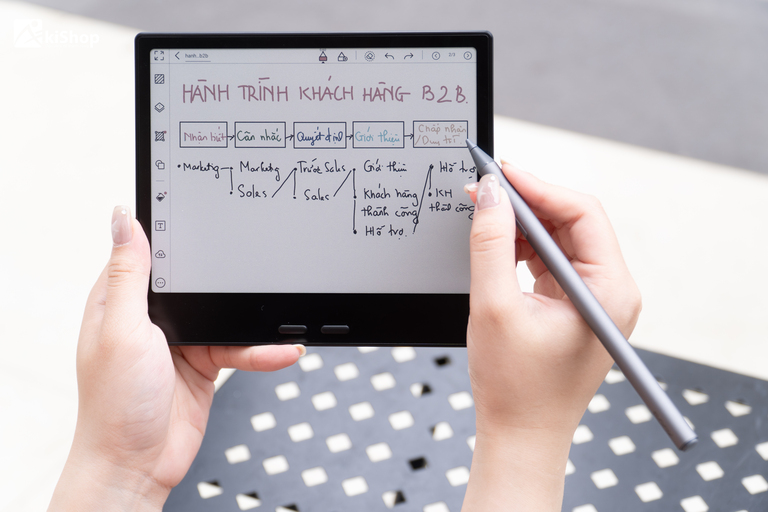 AkiShop
hành.b2b
2/3
HÀNH TRÌNH KHÁCH HÀNG B2B.
Nhân biết Cân nhắc Quyết định Giới thiệu Chấp nhận
/Duy trì
• Marketing Marketing Trước Sales Giới thiệu Hỗ trợ
Sales Sales Khách hàng KH
thành công thành công
Hỗ trợ.